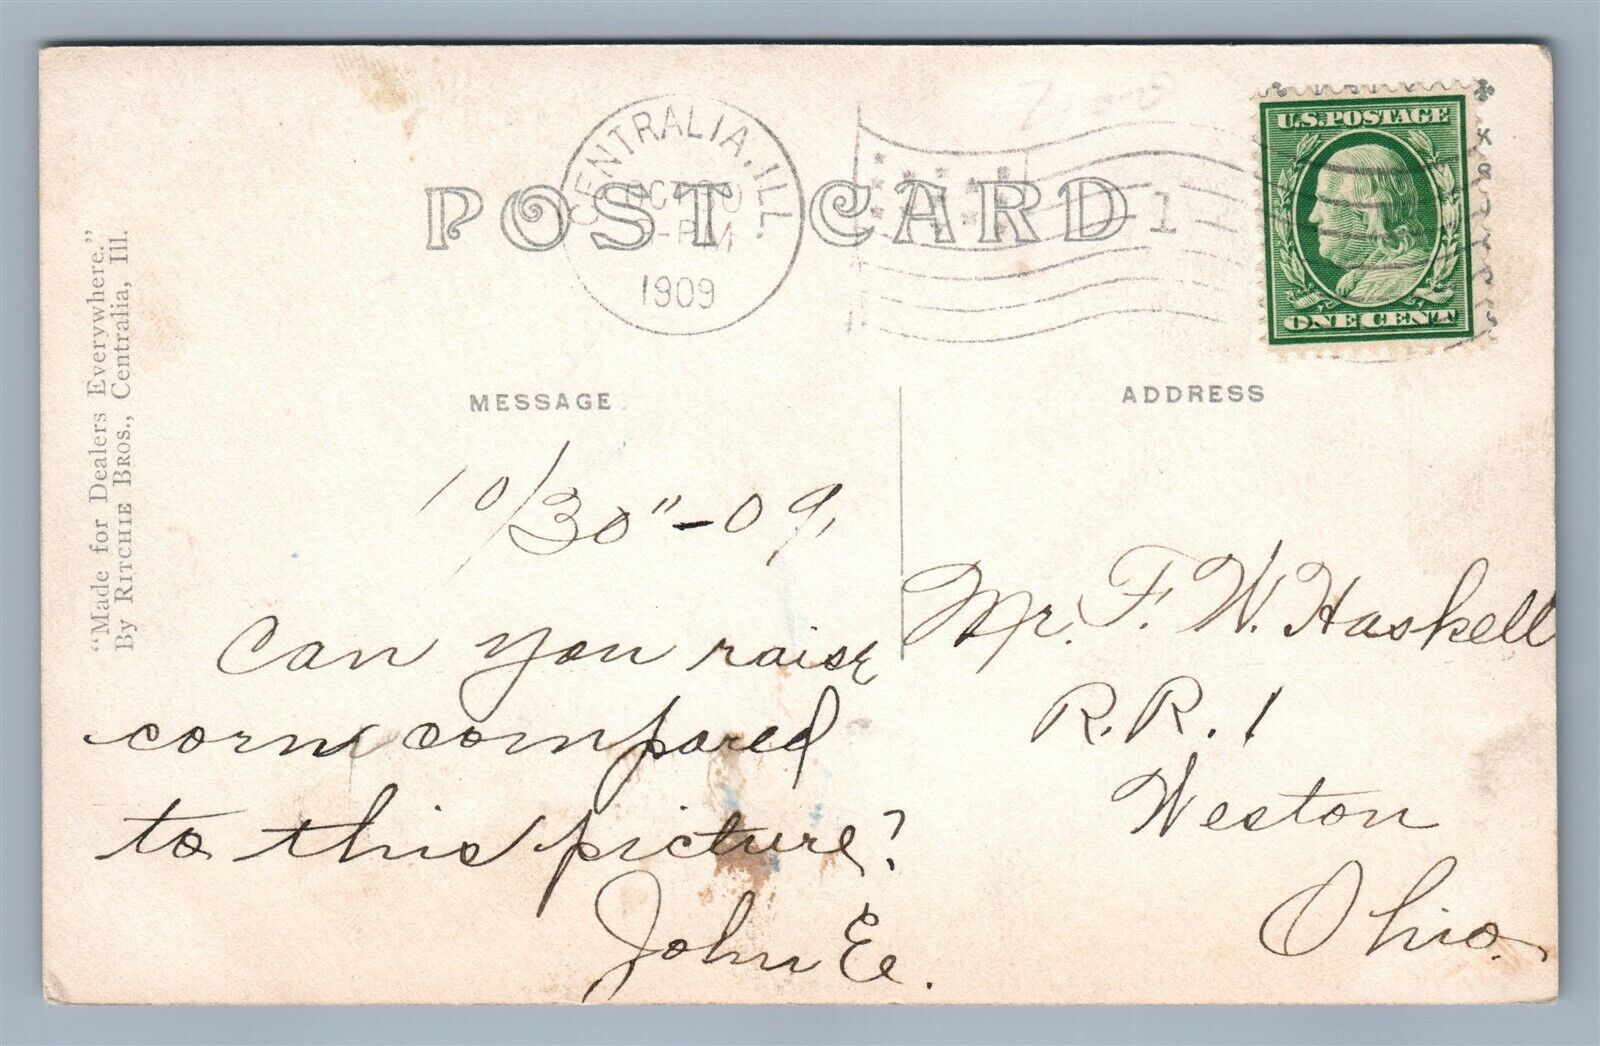 POST CARD
CENTRALIA, ILL.
OCT
PM
1909
1
U.S. POSTAGE
ONE CENT
"Made for Dealers Everywhere."
By RITCHIE BROS., Centralia, Ill.
MESSAGE
10/30"-09
Can you raise
corn compared
to this picture?
John E.
ADDRESS
Mr. F. W. Haskell
R.R. 1
Weston
Ohio.